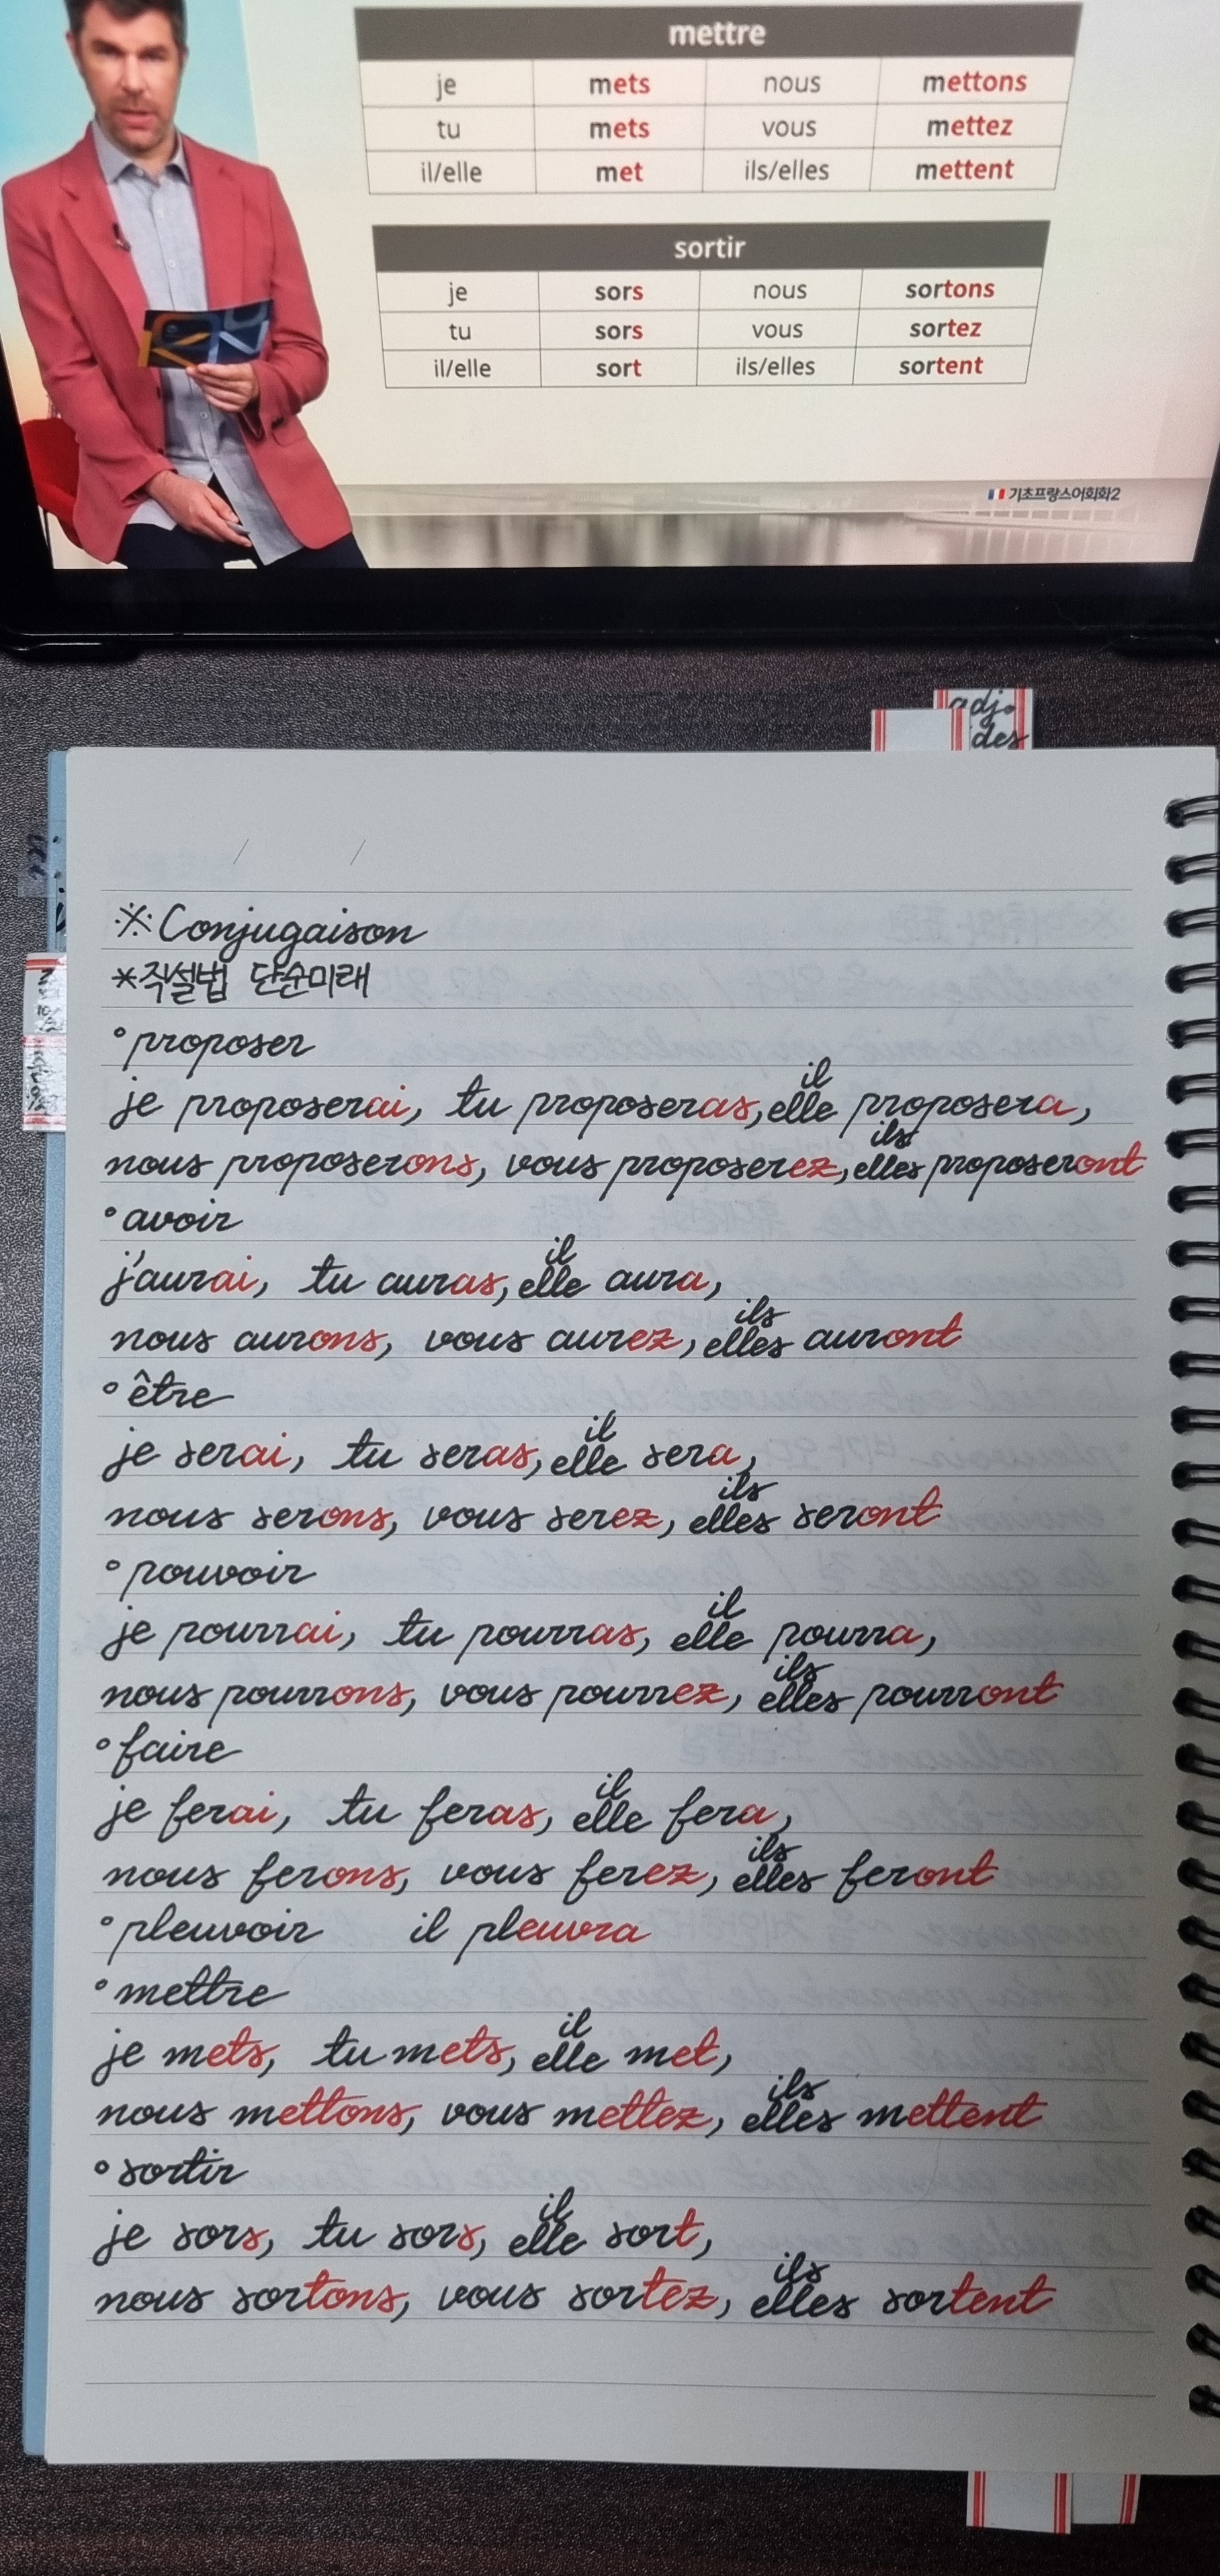 mettre
je mets nous mettons
tu mets vous mettez
il/elle met ils/elles mettent
sortir
je sors nous sortons
tu sors vous sortez
il/elle sort ils/elles sortent
기초프랑스어회화2
adj.
des
※Conjugaison
*직설법 단순미래
°proposer
je proposerai, tu proposeras, il elle proposera,
nous proposerons, vous proposerez, ils elles proposeront
°avoir
j'aurai, tu auras, il elle aura,
nous aurons, vous aurez, ils elles auront
°être
je serai, tu seras, il elle sera,
nous serons, vous serez, ils elles seront
°pouvoir
je pourrai, tu pourras, il elle pourra,
nous pourrons, vous pourrez, ils elles pourront
°faire
je ferai, tu feras, il elle fera,
nous ferons, vous ferez, ils elles feront
°pleuvoir il pleuvra
°mettre
je mets, tu mets, il elle met,
nous mettons, vous mettez, ils elles mettent
°sortir
je sors, tu sors, il elle sort,
nous sortons, vous sortez, ils elles sortent